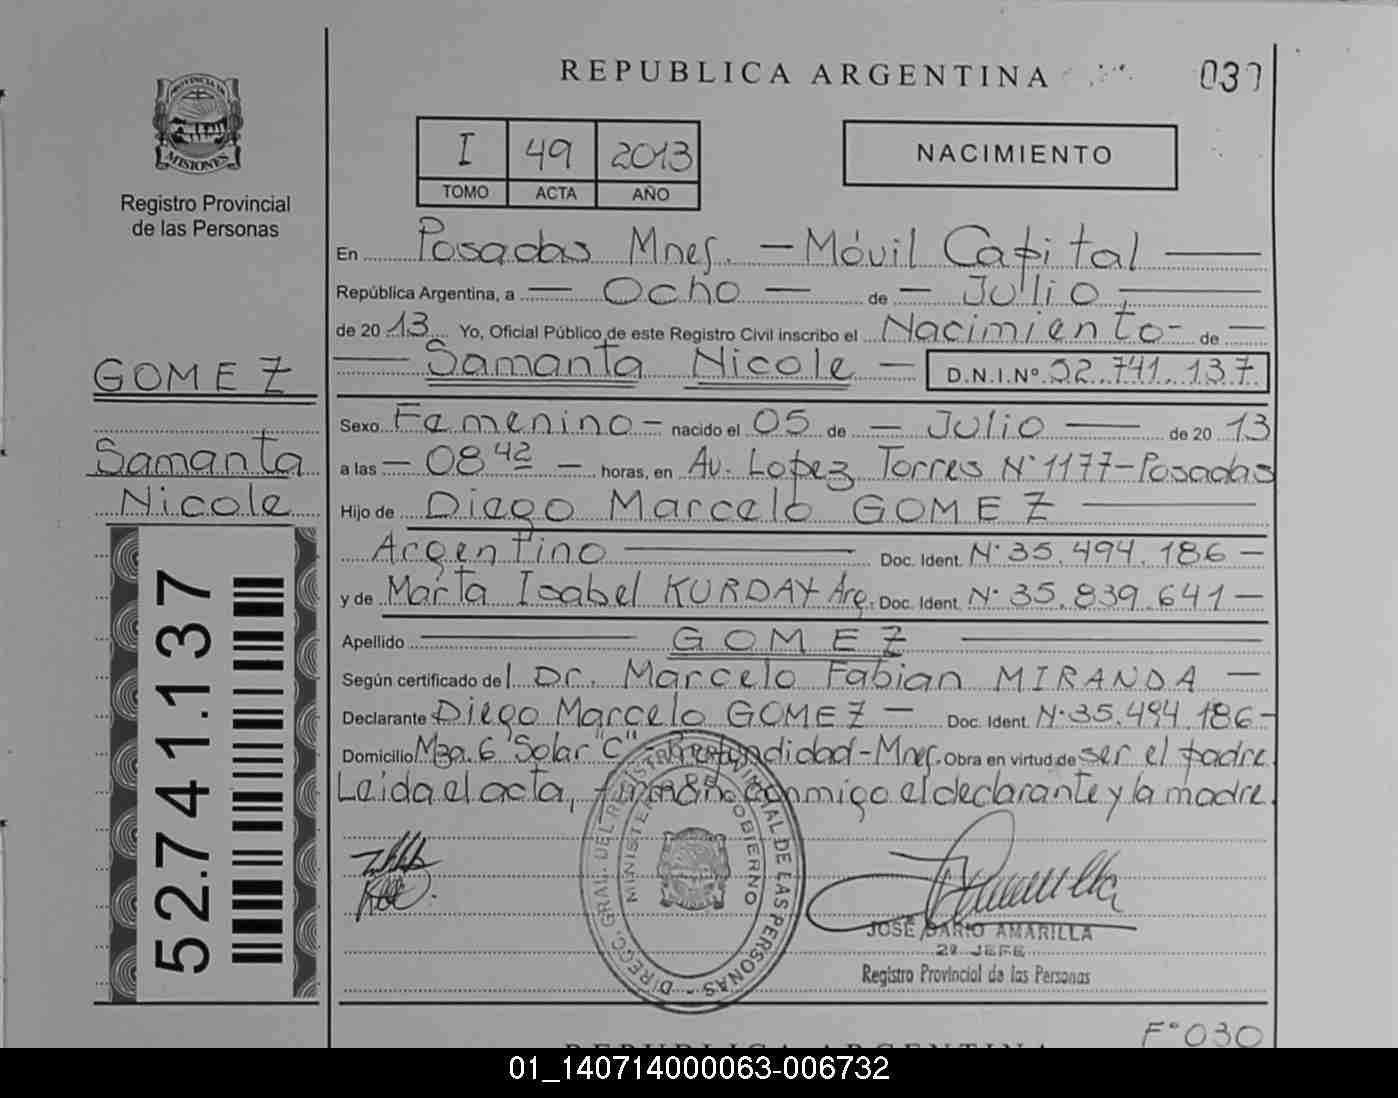 REPUBLICA ARGENTINA
PROVINCIA DE
MISIONES
Registro Provincial
de las Personas
I 49 2013
TOMO ACTA AÑO
NACIMIENTO
En Posadas Mnes. - Móvil Capital
República Argentina, a - Ocho - de - Julio,
de 2013 Yo, Oficial Público de este Registro Civil inscribo el Nacimiento - de -
Samanta Nicole - D.N.I.Nº 52.741.137
GOMEZ
Samanta
Nicole
52.741.137
Sexo Femenino - nacido el 05 de - Julio - de 2013
a las - 08 42 - horas, en Av. Lopez Torres Nº 1177 - Posadas
Hijo de Diego Marcelo GOMEZ
Argentino Doc. Ident. Nº 35.494.186 -
y de Marta Isabel KURDAY Arg. Doc. Ident. Nº 35.839.641 -
Apellido GOMEZ
Según certificado del Dr. Marcelo Fabian MIRANDA -
Declarante Diego Marcelo GOMEZ - Doc. Ident. Nº 35.494.186 -
Domicilio Mza. 6 Solar "C" - Profundidad - Mnes. Obra en virtud de ser el padre.
Leida el acta, firmando conmigo el declarante y la madre.
DIRECC. GRAL. DEL REGISTRO PROVINCIAL DE LAS PERSONAS
MINISTERIO DE GOBIERNO
JOSE DARIO AMARILLA
2º JEFE
Registro Provincial de las Personas
Fº 030
REPUBLICA ARGENTINA
01_140714000063-006732